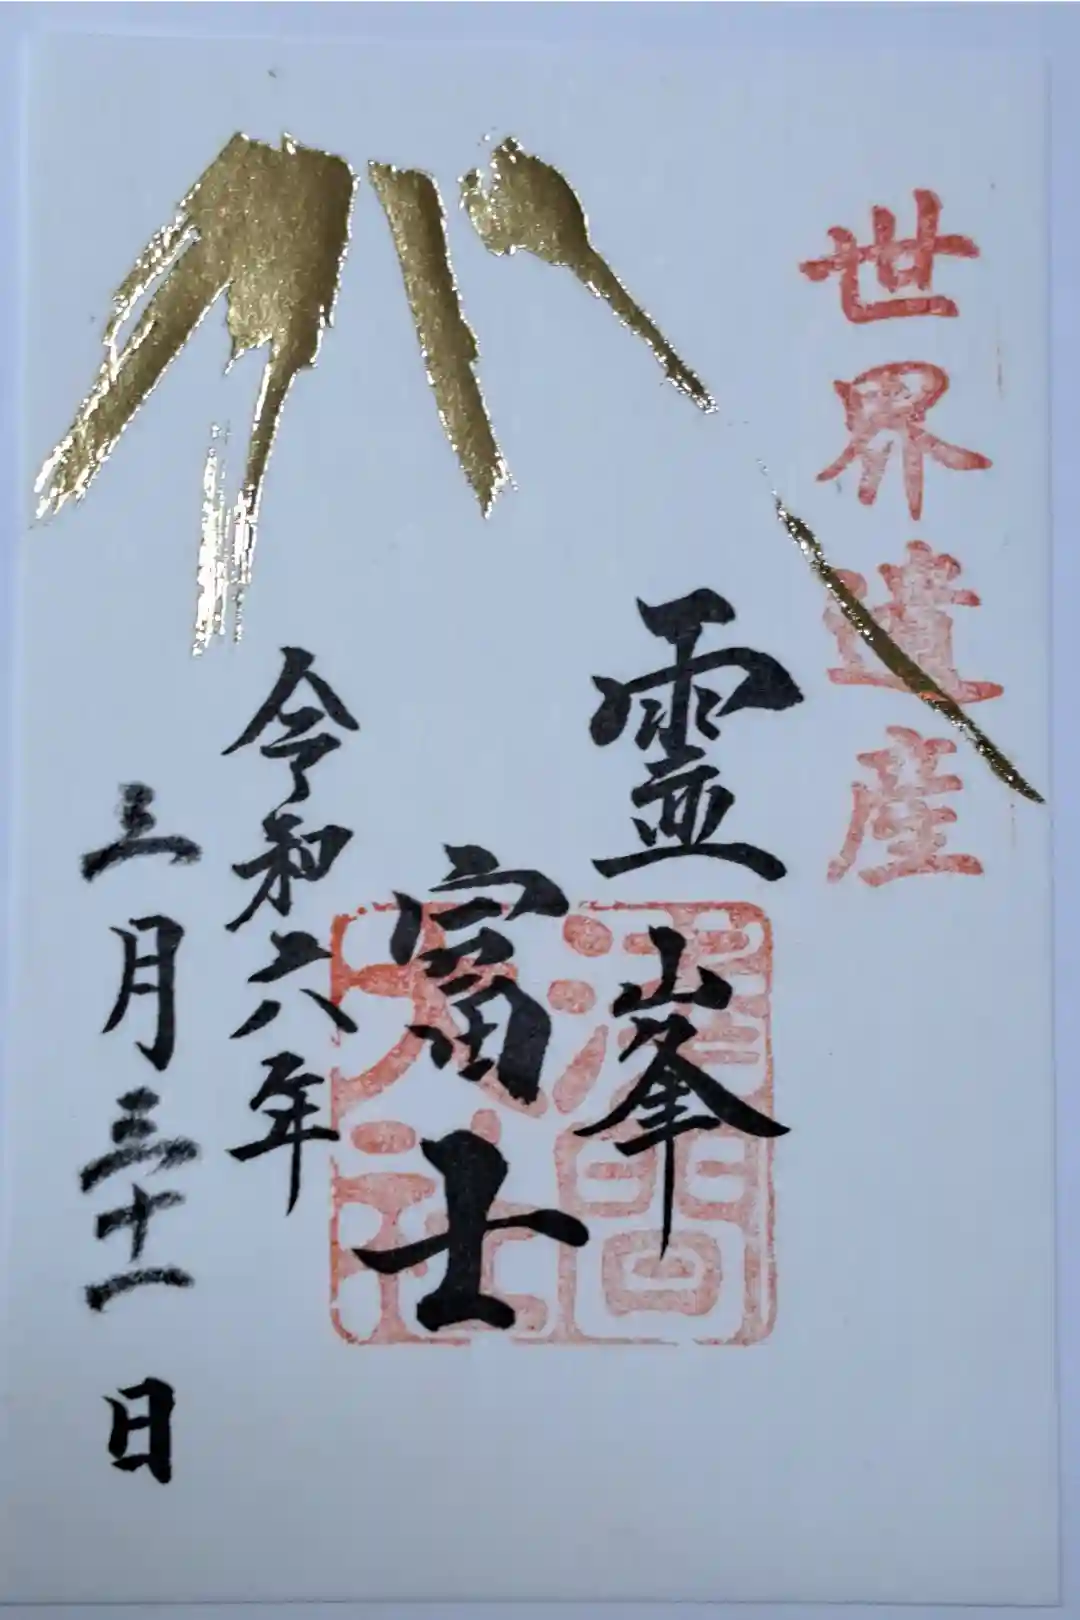 世界遺産
霊峯
富士
令和六年
三月三十一日
浅間
大社